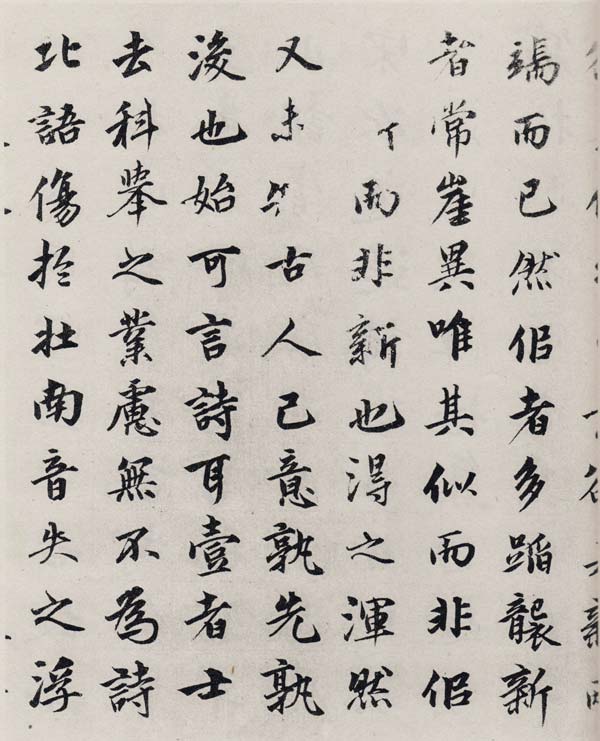 端而已然侣者多蹈襲新
者常崖異唯其似而非侣
而非新也得之渾然
又未古人己意孰先孰
後也始可言詩耳壹者士
去科舉之業慮無不為詩
北語傷於壯南音失之浮